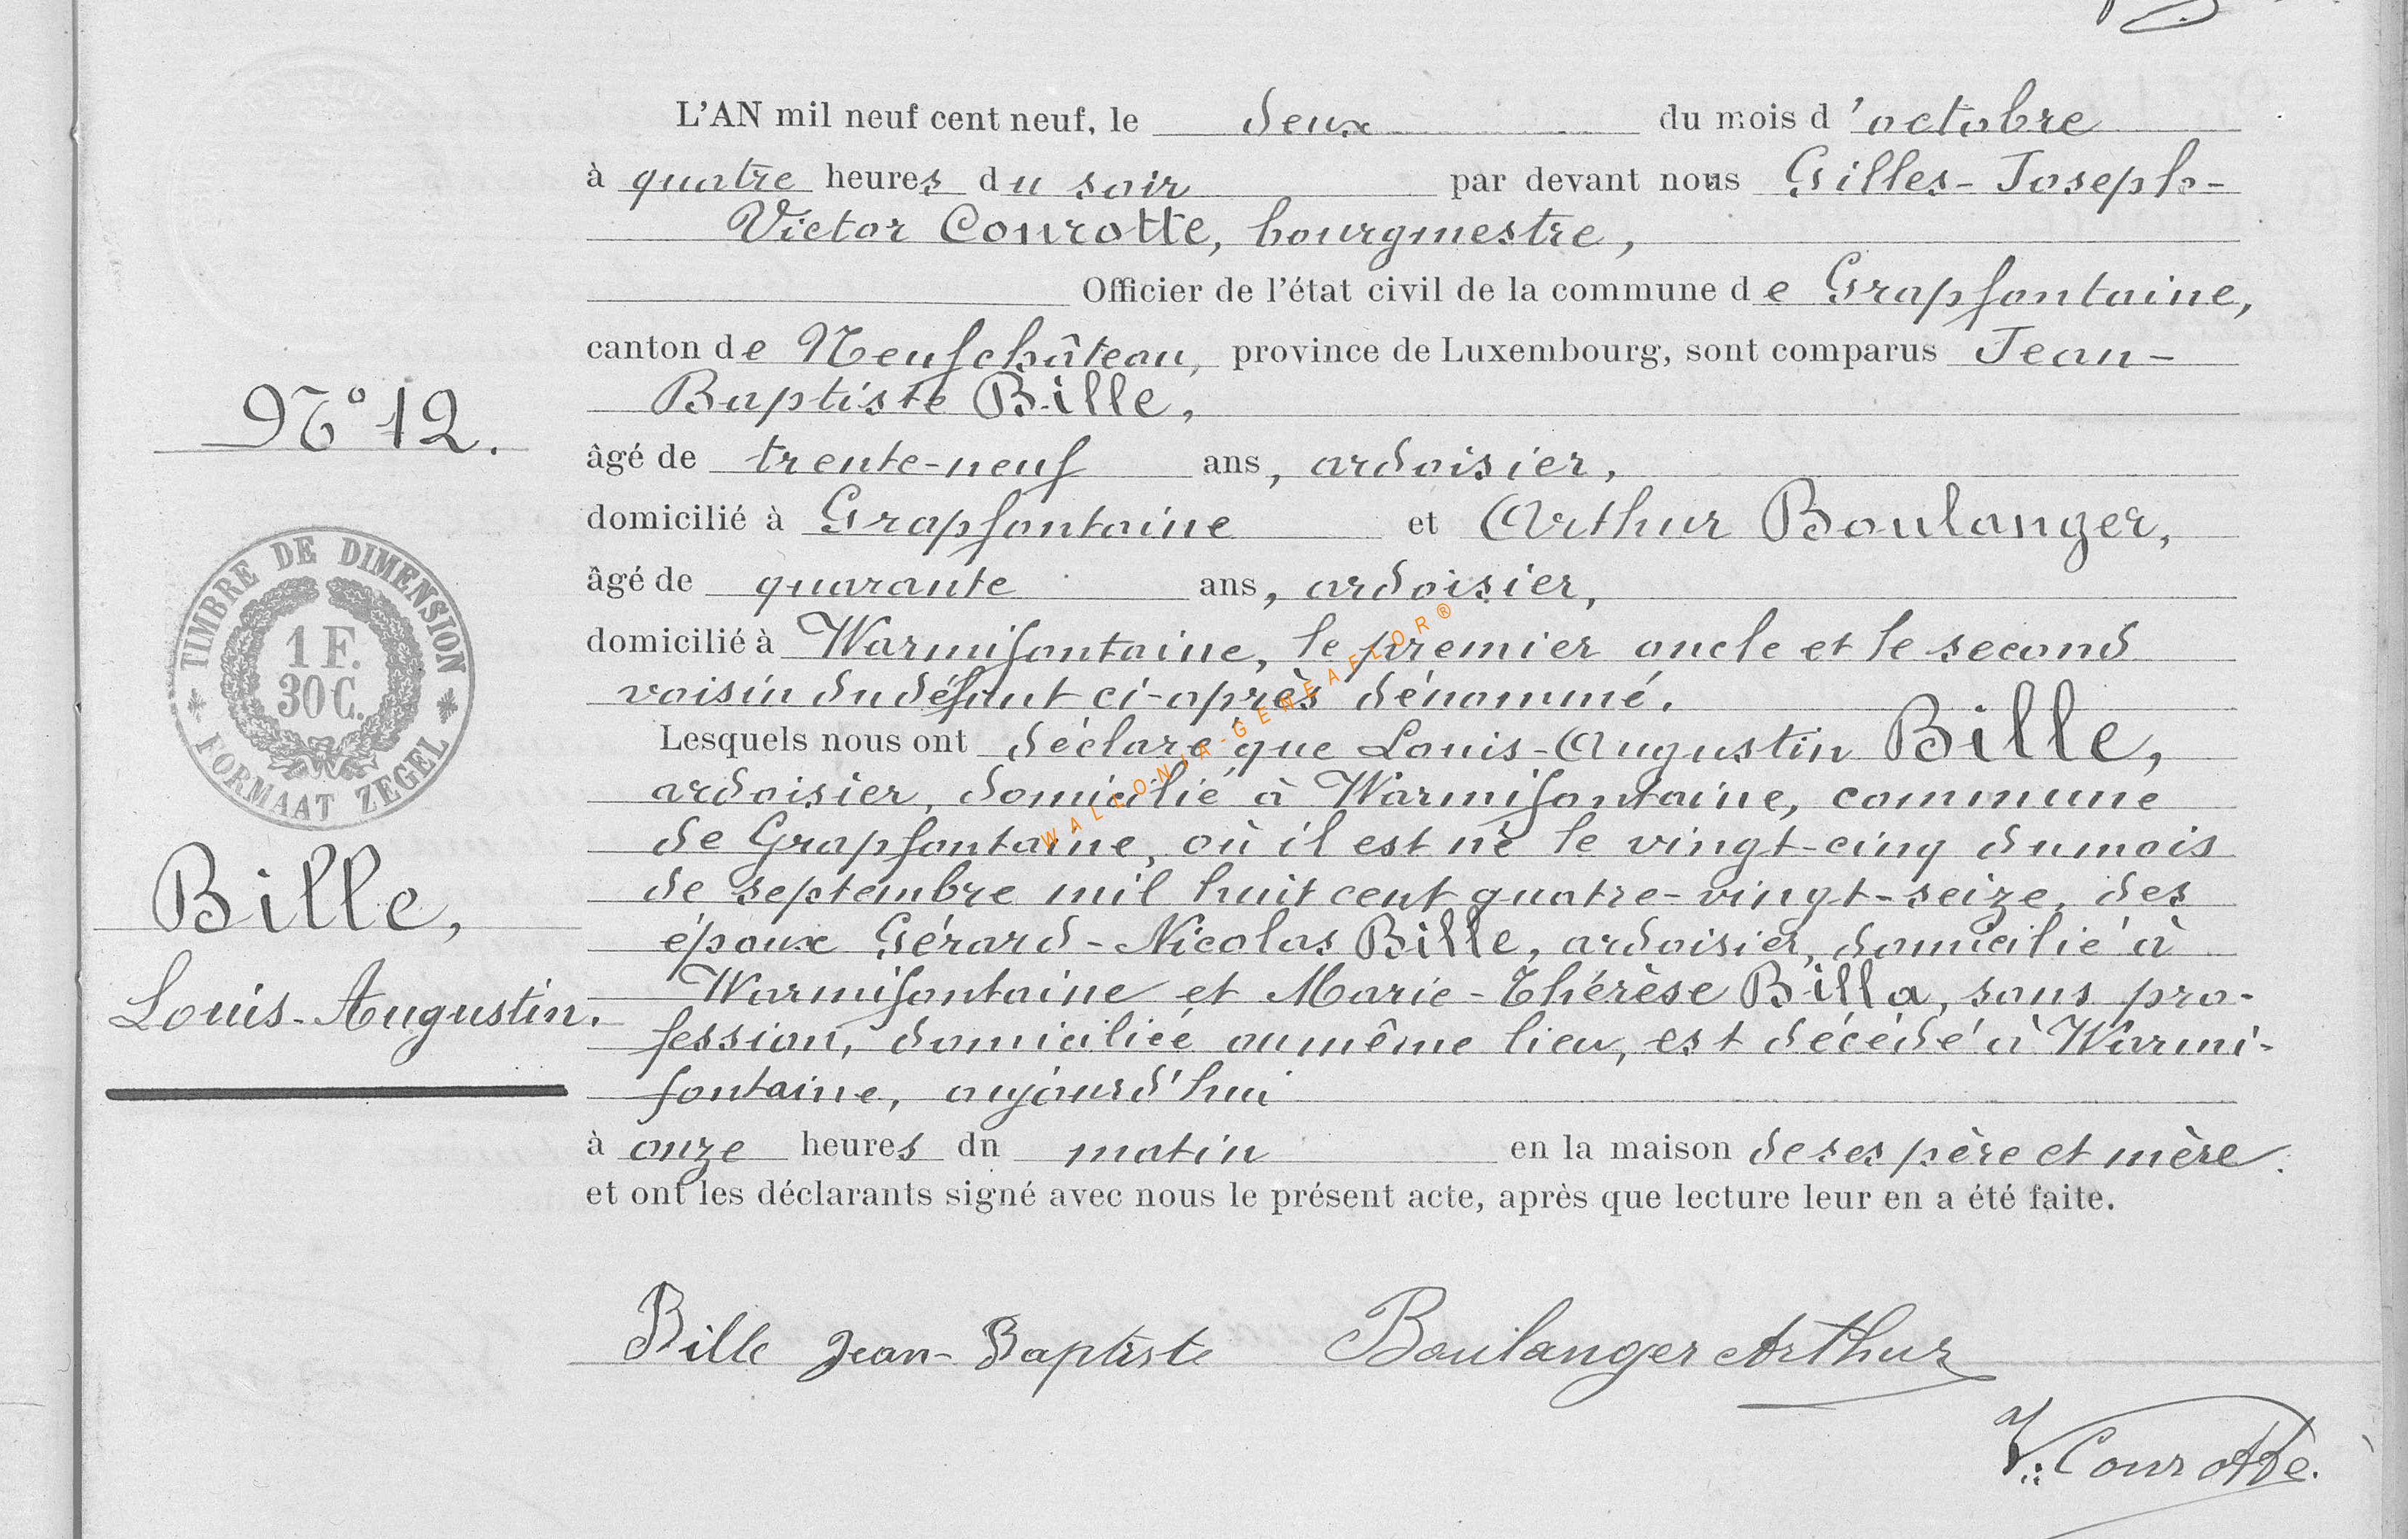 L'AN mil neuf cent neuf, le deux du mois d'octobre
à quatre heures du soir par devant nous Gilles-Joseph-
Victor Courotte, bourgmestre,
Officier de l'état civil de la commune de Grapfontaine,
canton de Neufchâteau, province de Luxembourg, sont comparus Jean-
Baptiste Bille,
N° 12.
âgé de trente-neuf ans, ardoisier,
domicilié à Grapfontaine et Arthur Boulanger,
âgé de quarante ans, ardoisier,
domicilié à Warmifontaine, le premier oncle et le second
voisin du défunt ci-après dénommé.
TIMBRE DE DIMENSION
1 F.
30 C.
FORMAAT ZEGEL
WALLONIA-GENEAFLOR®
Lesquels nous ont déclaré que Louis-Augustin Bille,
ardoisier, domicilié à Warmifontaine, commune
de Grapfontaine, où il est né le vingt-cinq du mois
de septembre mil huit cent quatre-vingt-seize, des
époux Gérard-Nicolas Bille, ardoisier, domicilié à
Warmifontaine et Marie-Thérèse Billa, sans pro-
fession, domiciliée au même lieu, est décédé à Warmi-
fontaine, aujourd'hui
Bille,
Louis-Augustin.
à onze heures du matin en la maison de ses père et mère.
et ont les déclarants signé avec nous le présent acte, après que lecture leur en a été faite.
Bille Jean-Baptiste Boulanger Arthur
V. Courotte.